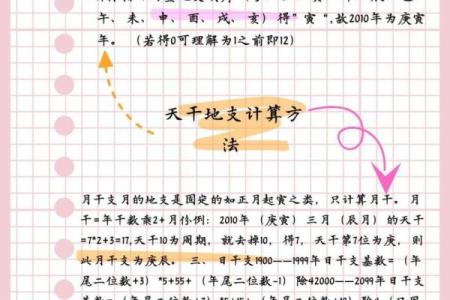 午、未、申、酉、戌、亥）得"寅 ",故2010年为庚寅
年。 （若得0可理解为1之前即12）
天干地支计算方
法
月干支月的地支是固定的如正月起寅之类, 只计算月干。 月
干=年干数乘2+月份例: 2010年 （庚寅） 三月 （辰月） 的天干
=7*2+3=17,天干10为周期, 就去掉10, 得7, 天干第7位为庚, 则
此月干支为庚辰。 三、日干支1900——1999年日干支基数= （年
尾二位数+3）*5+55+ （年尾二位数-1） 除42000——2099年日干支